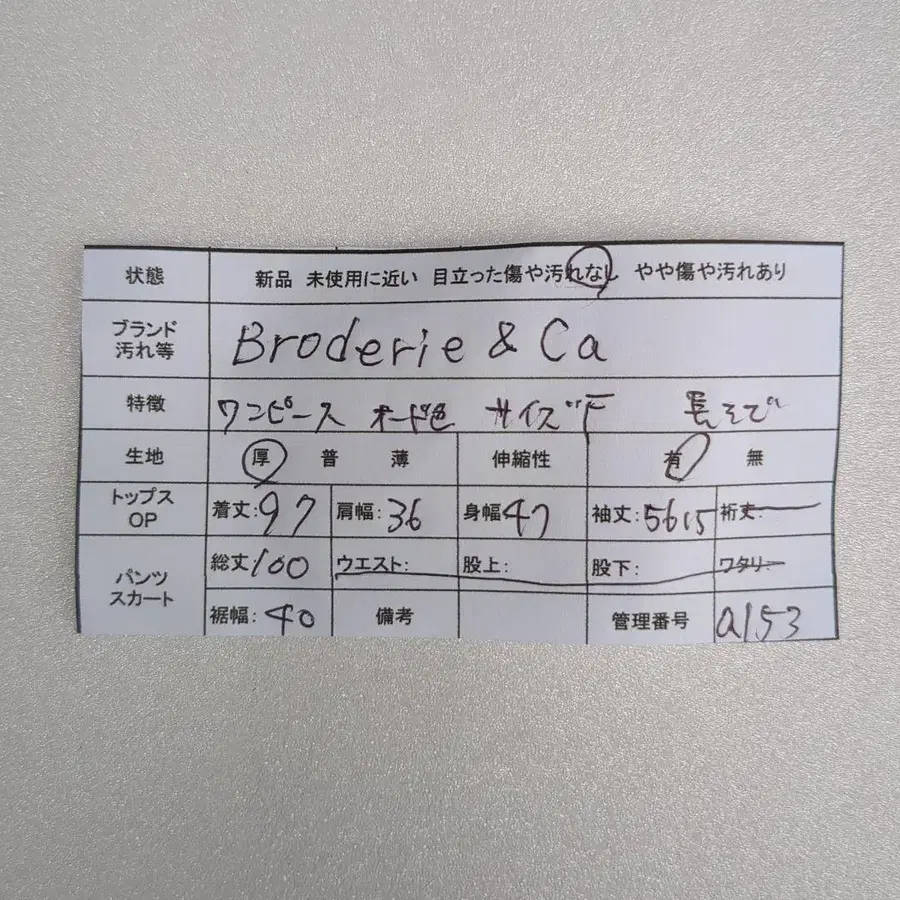 状態 新品 未使用に近い 目立った傷や汚れなし やや傷や汚れあり
ブランド
汚れ等 Broderie & Ca
特徴 ワンピース オード色 サイズF 長そで
生地 厚 普 薄 伸縮性 有 無
トップス
OP 着丈:97 肩幅:36 身幅47 袖丈:56.5 裄丈:
パンツ
スカート 総丈100 ウエスト: 股上: 股下: ワタリ:
裾幅:40 備考 管理番号 a153